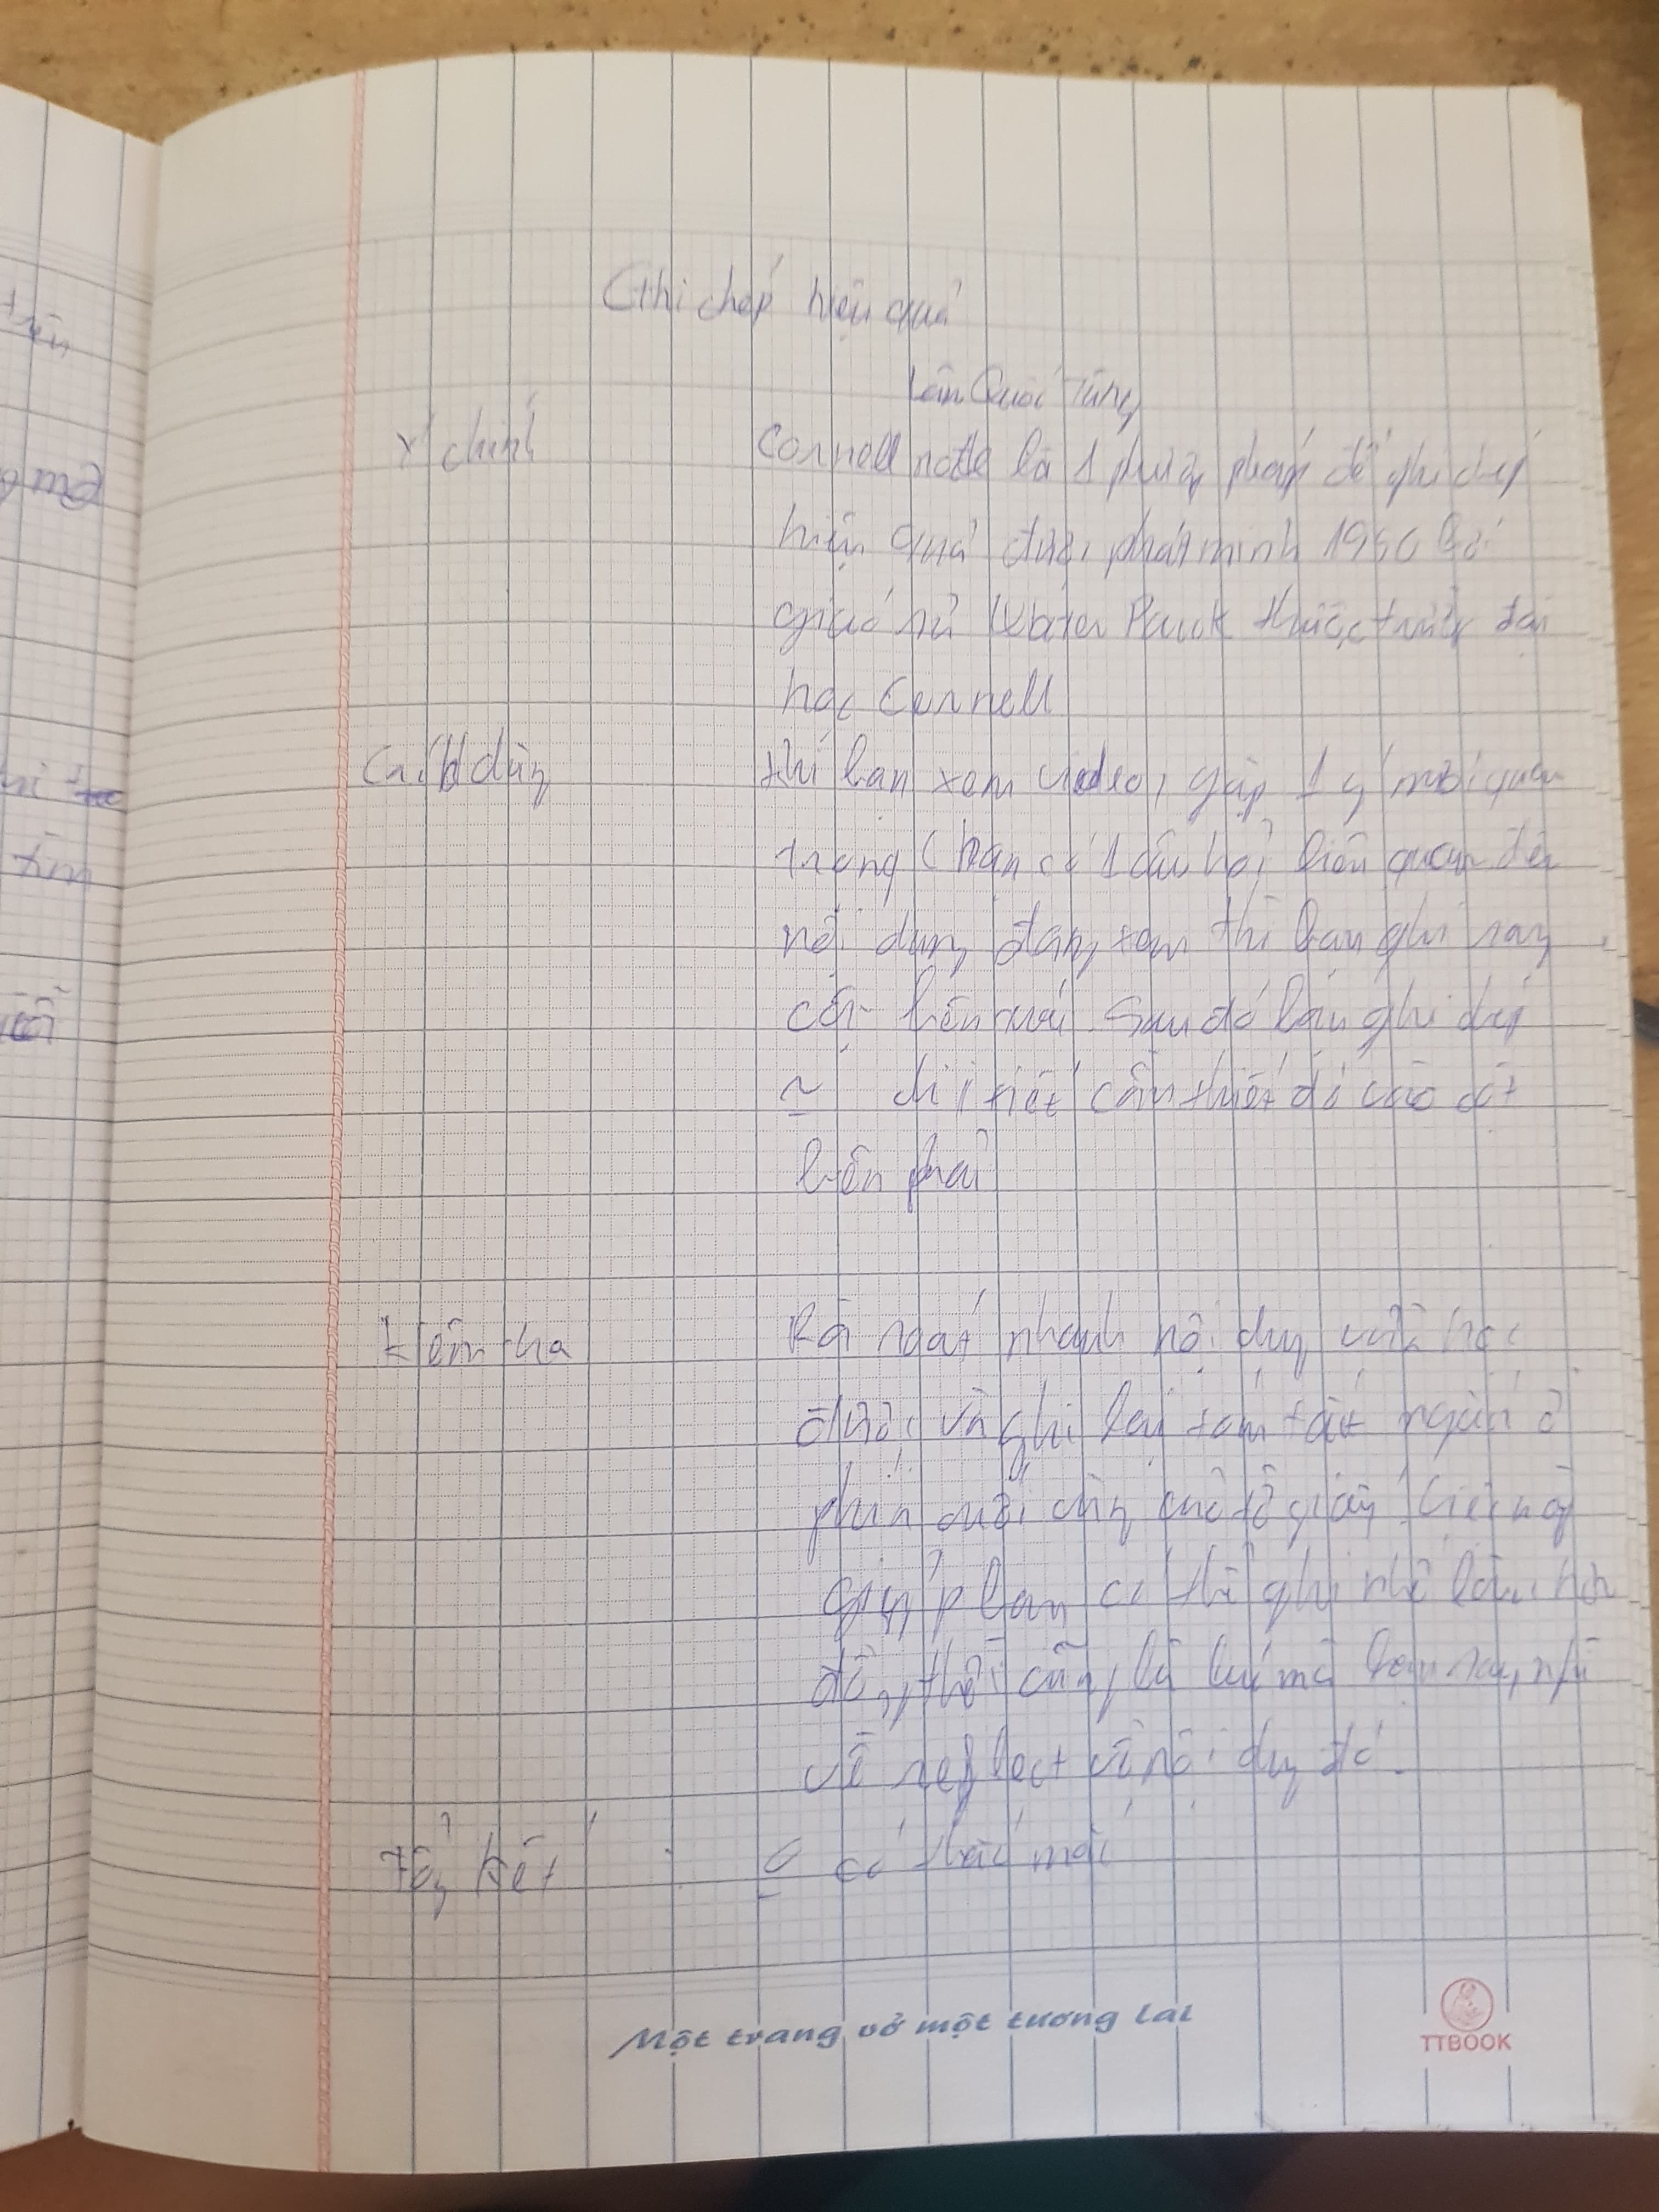 trên
Ghi chép hiệu quả
Lâm Quốc Tùng
Ý chính
Cornell note là 1 phương pháp để ghi chép
hiệu quả được phát minh 1950 bởi
giáo sư Walter Pauk thuộc trường đại
học Cornell
Cách dùng
Khi bạn xem video, gặp 1 ý mới quan
trọng bạn có 1 câu hỏi liên quan đến
nội dung đang xem thì bạn ghi sang
cột bên trái. Sau đó bạn ghi chép
chi tiết cần thiết đó vào cột
bên phải
Kiểm tra
Rà soát nhanh nội dung vừa học
được và ghi lại tóm tắt ngắn ở
phần cuối cùng của tờ giấy. Việc này
giúp bạn có thể ghi nhớ lâu hơn
đồng thời cũng là lúc mà bạn suy nghĩ
về reflect về nội dung đó.
Tổng kết
có thắc mắc
Một trang vở một tương lai
TTBOOK